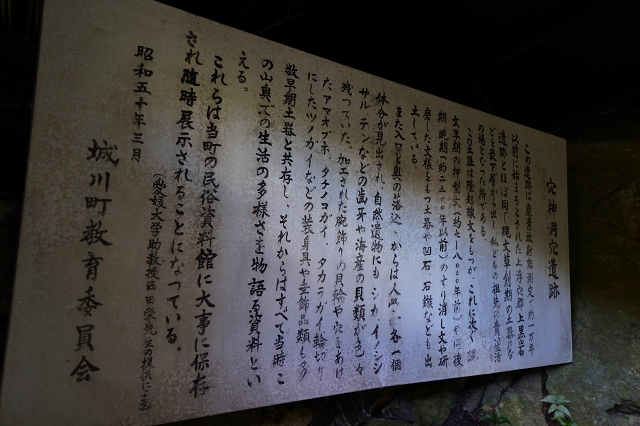 穴神洞穴遺跡
この遺跡は炭素放射能測定で約一万年
以前に始まるとされた上浮穴郡上黒岩
遺跡とほぼ同じ縄文草創期の土器など
どを最下層から出し私どもの祖先の生活
の場となった所である。
この土器は隆起線文をもつが、これに次ぐ縄
文早期の押型文(約七〜八〇〇〇年前)や同後
期晩期 以前)のすり消し文や研
磨した文様をもつ土器や凹石、石鏃なども出
土している。
また入口と奥の落込 からは人 各一個
体分が見出され、自然遺物にもシカ、イノシシ
サル、テンなどの歯牙や海産の貝類が色々
残っていた。加工された腕飾りの貝輪や穴をあけ
たアマオブネ、タチノコガイ、タカラガイ輪切り
にしたツノガイなどの装身具や垂飾品類も多
数早期土器と共存し、それからはすべて当時こ
の山奥での生活の多様さを物語る資料とい
える。
これらは当町の民俗資料館に大事に保存
され随時展示されることになっている。
(愛媛大学助教授 田栄先生の提供による)
昭和五十年三月
城川町教育委員会